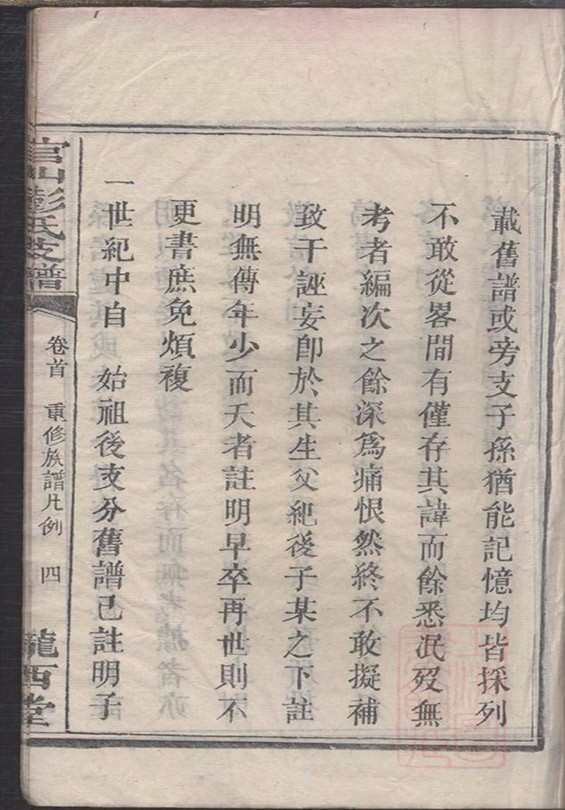 載舊譜或旁支子孫猶能記憶均皆採列
不敢從畧間有僅存其諱而餘悉泯歿無
考者編次之餘深爲痛恨然終不敢擬補
致干誣妄卽於其生父紀後子某之下註
明無傳年少而夭者註明早卒再世則不
更書庶免煩複
一世紀中自 始祖後支分舊譜已註明子
官山彭氏支譜 卷首 重修族譜凡例 四 隴西堂